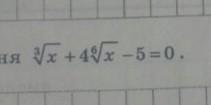 ня ∛x + 4⁶√x − 5 = 0 .